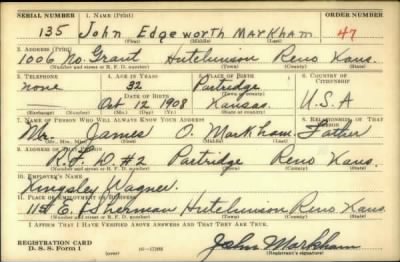 SERIAL NUMBER 1. NAME (Print) ORDER NUMBER
135 John Edgeworth Markham 47
(First) (Middle) (Last)
2. ADDRESS (Print)
1006 No. Grant Hutchinson Reno Kans.
(Number and street or R. F. D. number) (Town) (County) (State)
3. TELEPHONE 4. AGE IN YEARS 5. PLACE OF BIRTH 6. COUNTRY OF CITIZENSHIP
none 32 Partridge
DATE OF BIRTH (Town or county)
Oct 12 1908 Kansas. U.S.A
(Exchange) (Number) (Mo.) (Day) (Yr.) (State or country)
7. NAME OF PERSON WHO WILL ALWAYS KNOW YOUR ADDRESS 8. RELATIONSHIP OF THAT PERSON
Mr. James O. Markham Father
(Mr., Mrs., Miss) (First) (Middle) (Last)
9. ADDRESS OF THAT PERSON
R.F.D. #2 Partridge Reno Kans.
(Number and street or R. F. D. number) (Town) (County) (State)
10. EMPLOYER'S NAME
Kingsley Wagner.
11. PLACE OF EMPLOYMENT OR BUSINESS
E. Sherman Hutchinson Reno Kans
(Number and street or R. F. D. number) (Town) (County) (State)
I AFFIRM THAT I HAVE VERIFIED ABOVE ANSWERS AND THAT THEY ARE TRUE.
REGISTRATION CARD
D. S. S. Form 1 (over) John Markham
(Registrant's signature)